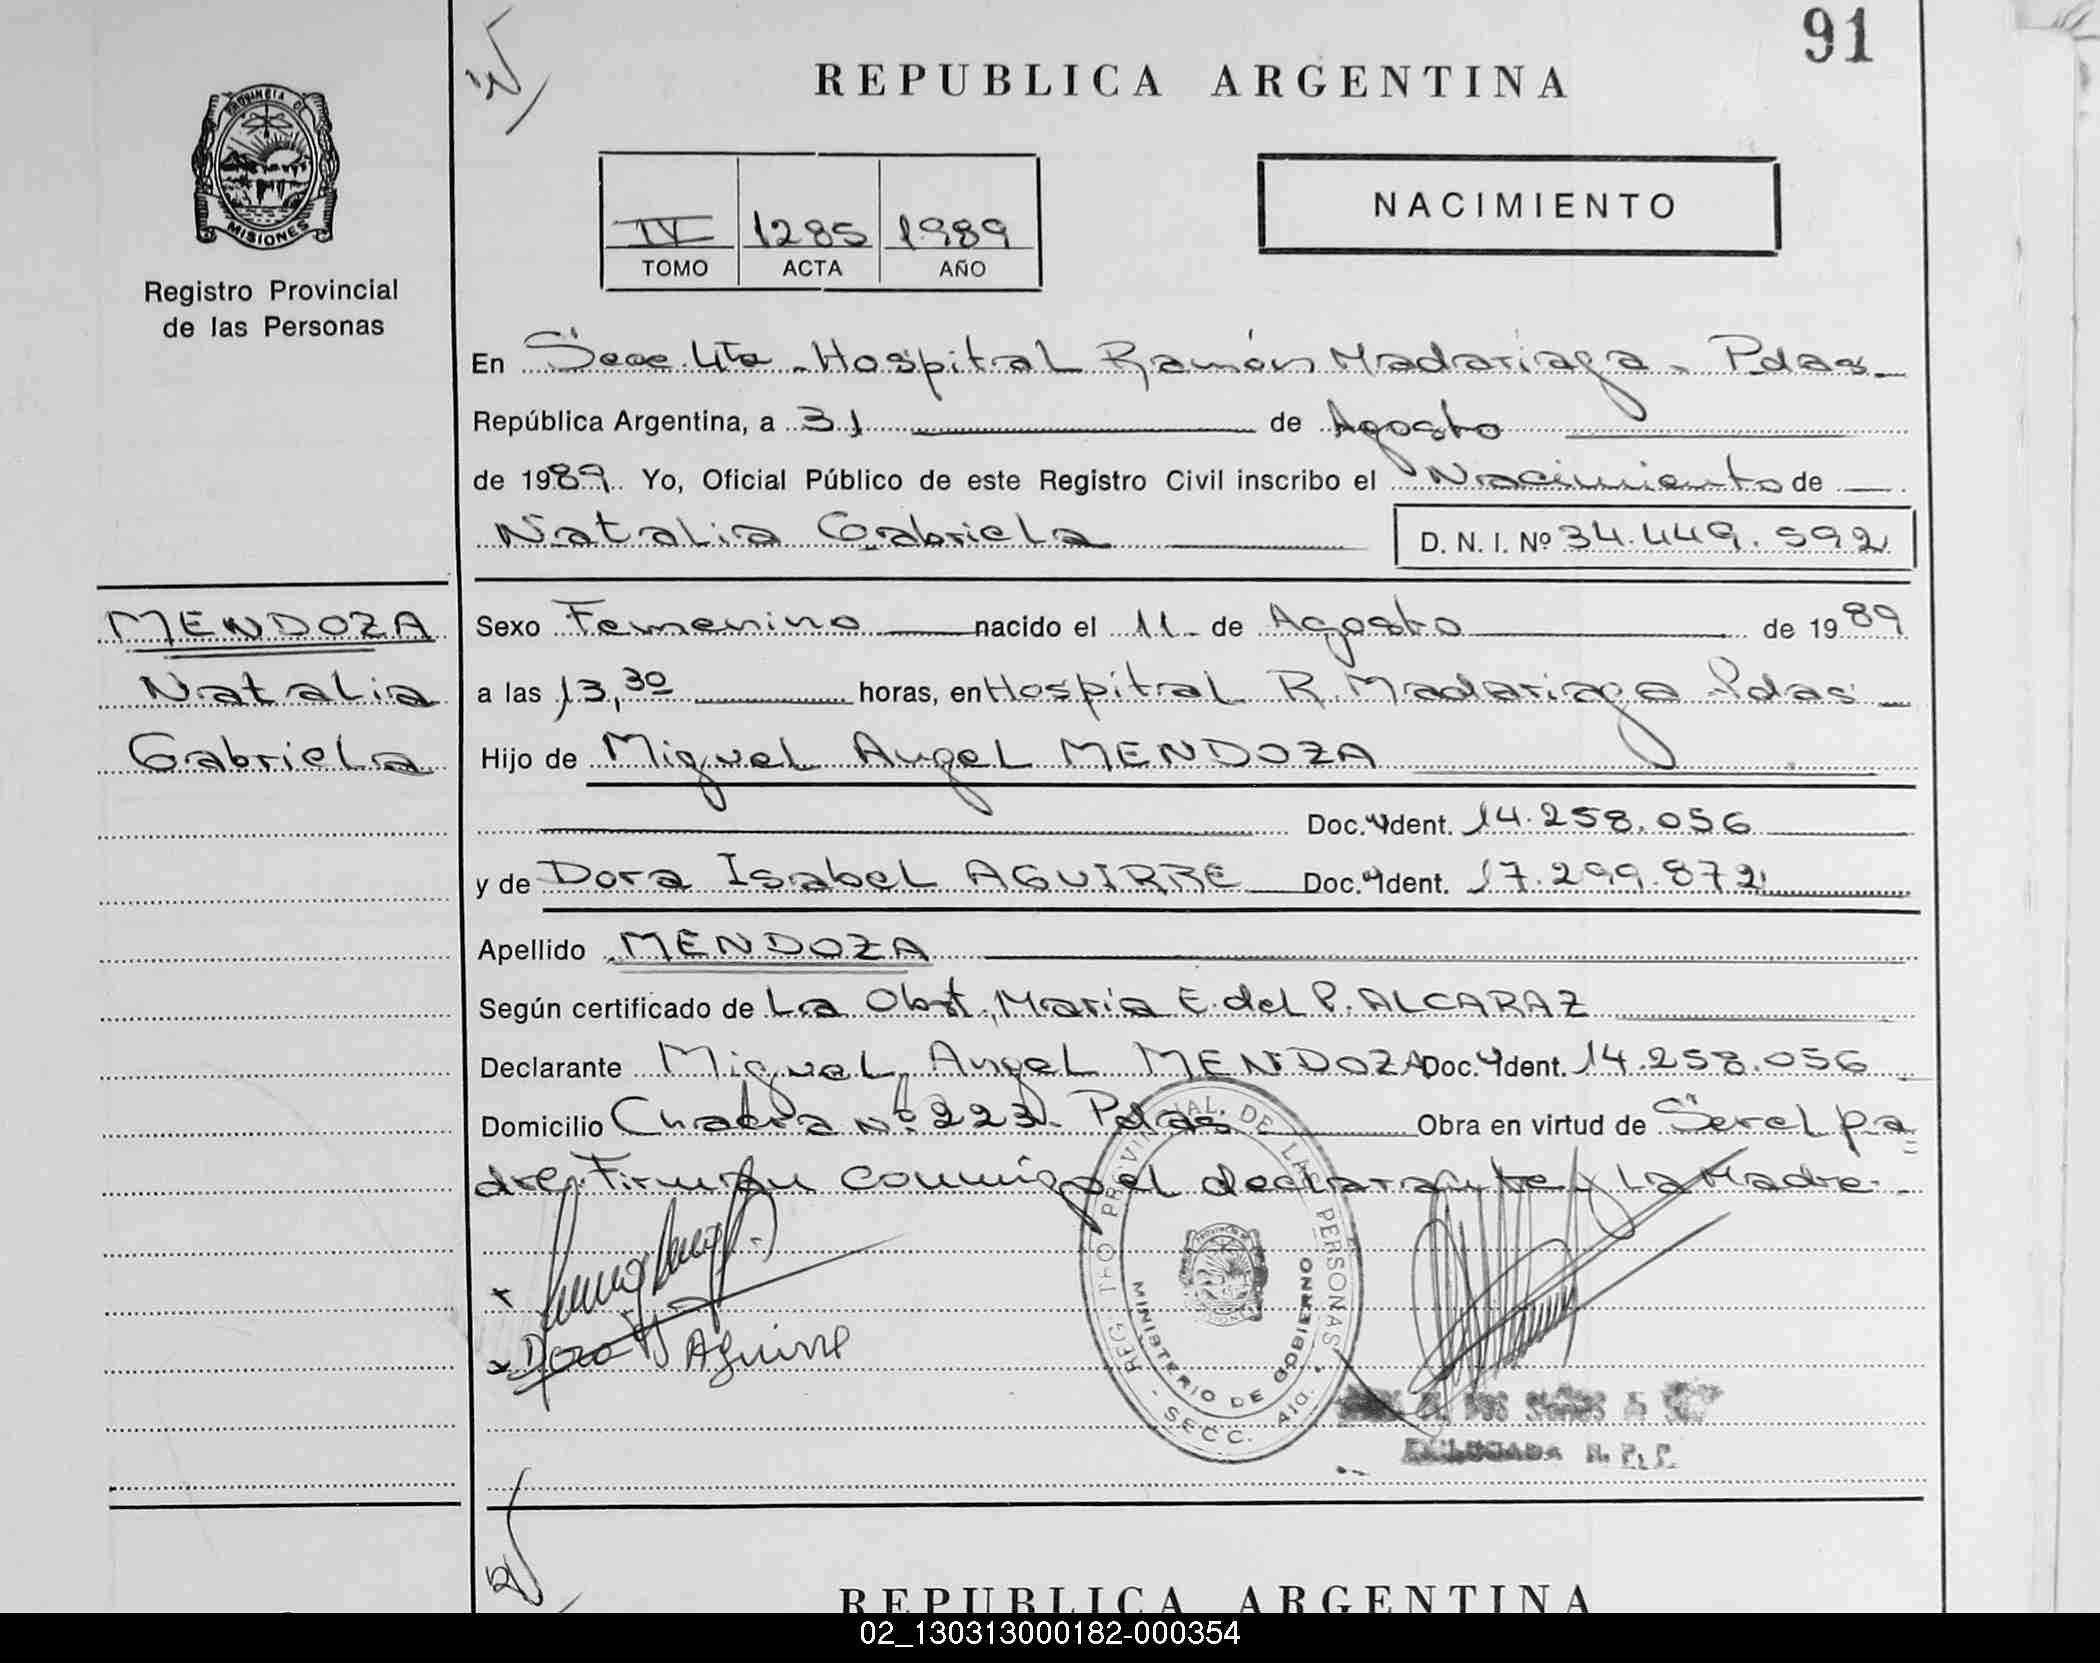 91
REPUBLICA ARGENTINA
PROVINCIA DE
MISIONES
Registro Provincial
de las Personas
NACIMIENTO
IV 1285 1989
TOMO ACTA AÑO
En Secc. 4ta. Hospital Ramón Madariaga. Pdas
República Argentina, a 31 de Agosto
de 1989. Yo, Oficial Público de este Registro Civil inscribo el Nacimiento de
Natalia Gabriela
D. N. I. Nº 34.449.592
MENDOZA
Natalia
Gabriela
Sexo Femenino nacido el 11 de Agosto de 1989
a las 13,30 horas, en Hospital R. Madariaga Pdas
Hijo de Miguel Angel MENDOZA
Doc. Ident. 14.258.056
y de Dora Isabel AGUIRRE Doc. Ident. 17.299.872
Apellido MENDOZA
Según certificado de La Obst. María E. del P. ALCARAZ
Declarante Miguel Angel MENDOZA Doc. Ident. 14.258.056
Domicilio Chacra Nº 223. Pdas Obra en virtud de Ser el pa
dre. Firman conmigo el declarante y La Madre.
Dora I Aguirre
REGISTRO PROVINCIAL DE LAS PERSONAS
MINISTERIO DE GOBIERNO
SECC. 4ta.
ENCARGADA R. P. P.
REPUBLICA ARGENTINA
02_130313000182-000354